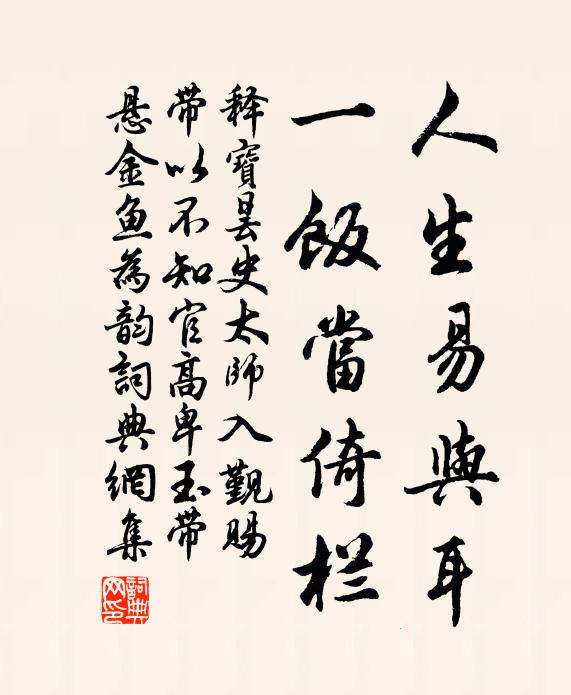 人生易與耳
一飯當倚栏
释寶曇史太師入觐賜
带以不知官高卑玉带
悬金鱼為韵詞典網集
詞典网印